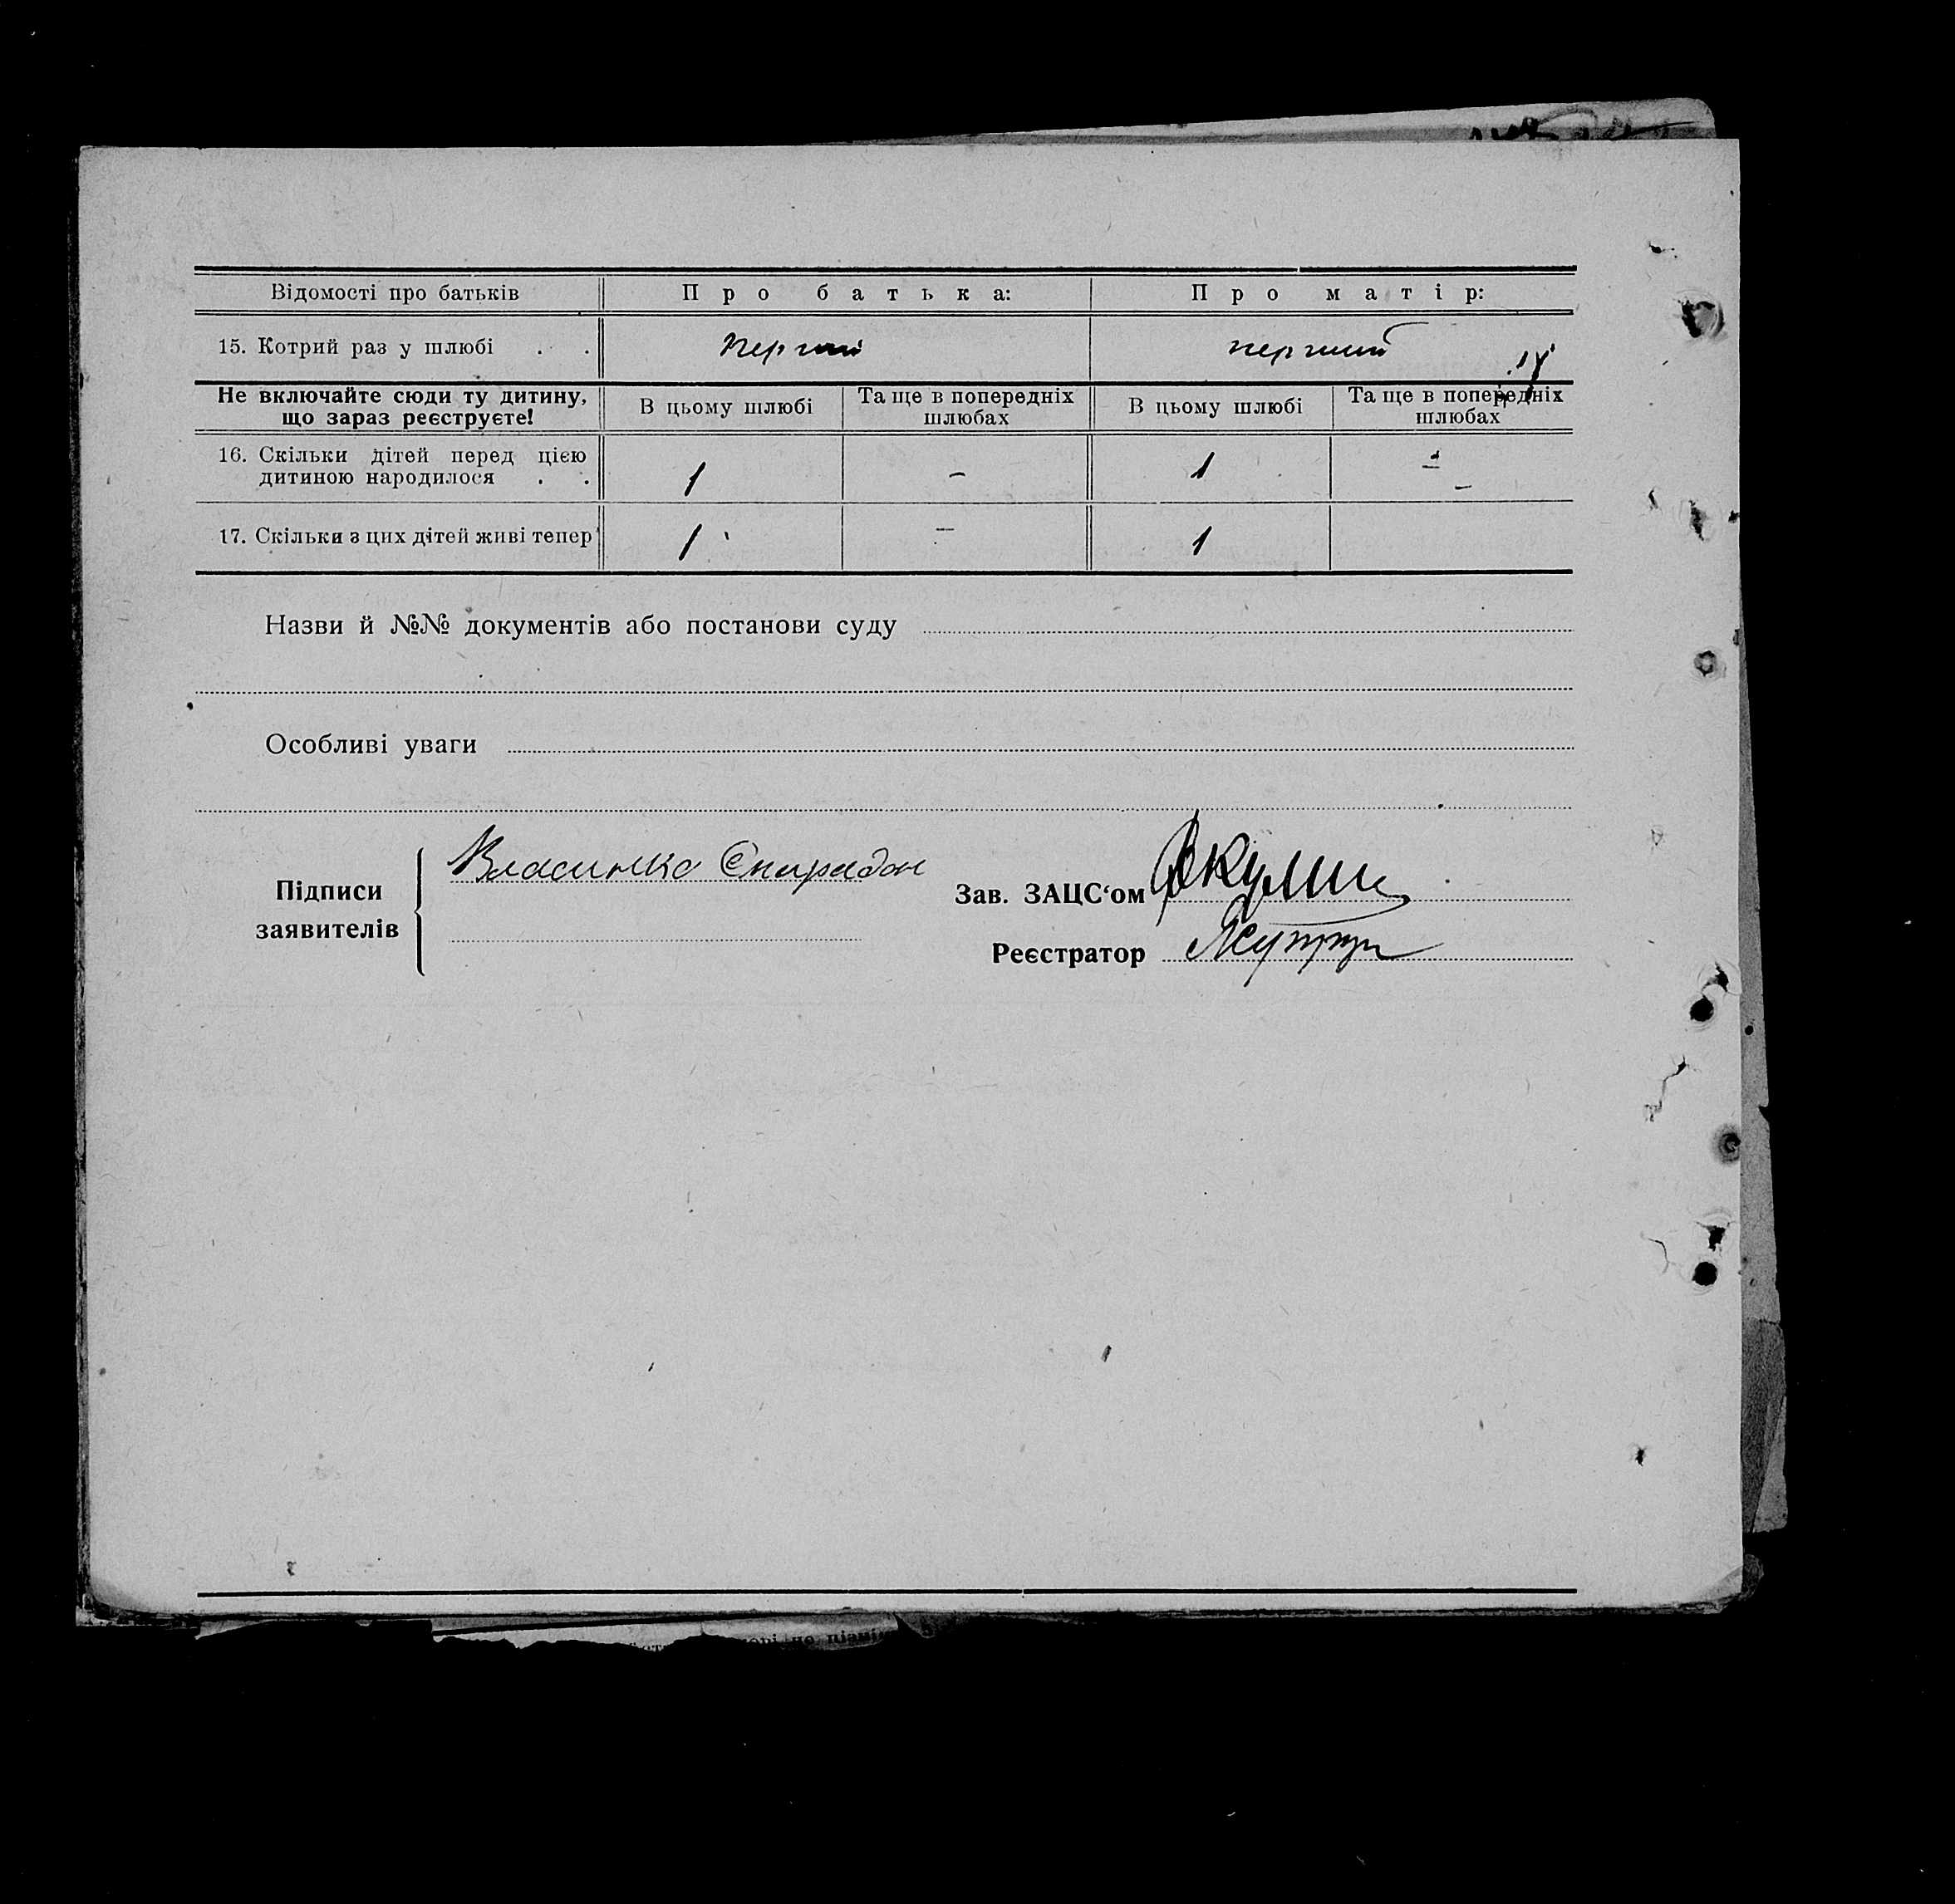 Відомості про батьків Про батька: Про матір:
15. Котрий раз у шлюбі . . перший перший
Не включайте сюди ту дитину, що зараз реєструєте!
В цьому шлюбі Та ще в попередніх шлюбах В цьому шлюбі Та ще в попередніх шлюбах
16. Скільки дітей перед цією
дитиною народилося . . 1 – 1 –
17. Скільки з цих дітей живі тепер 1 – 1
Назви й №№ документів або постанови суду
Особливі уваги
Підписи
заявителів
Власинко Спиридон
Зав. ЗАЦС‘ом
Реєстратор